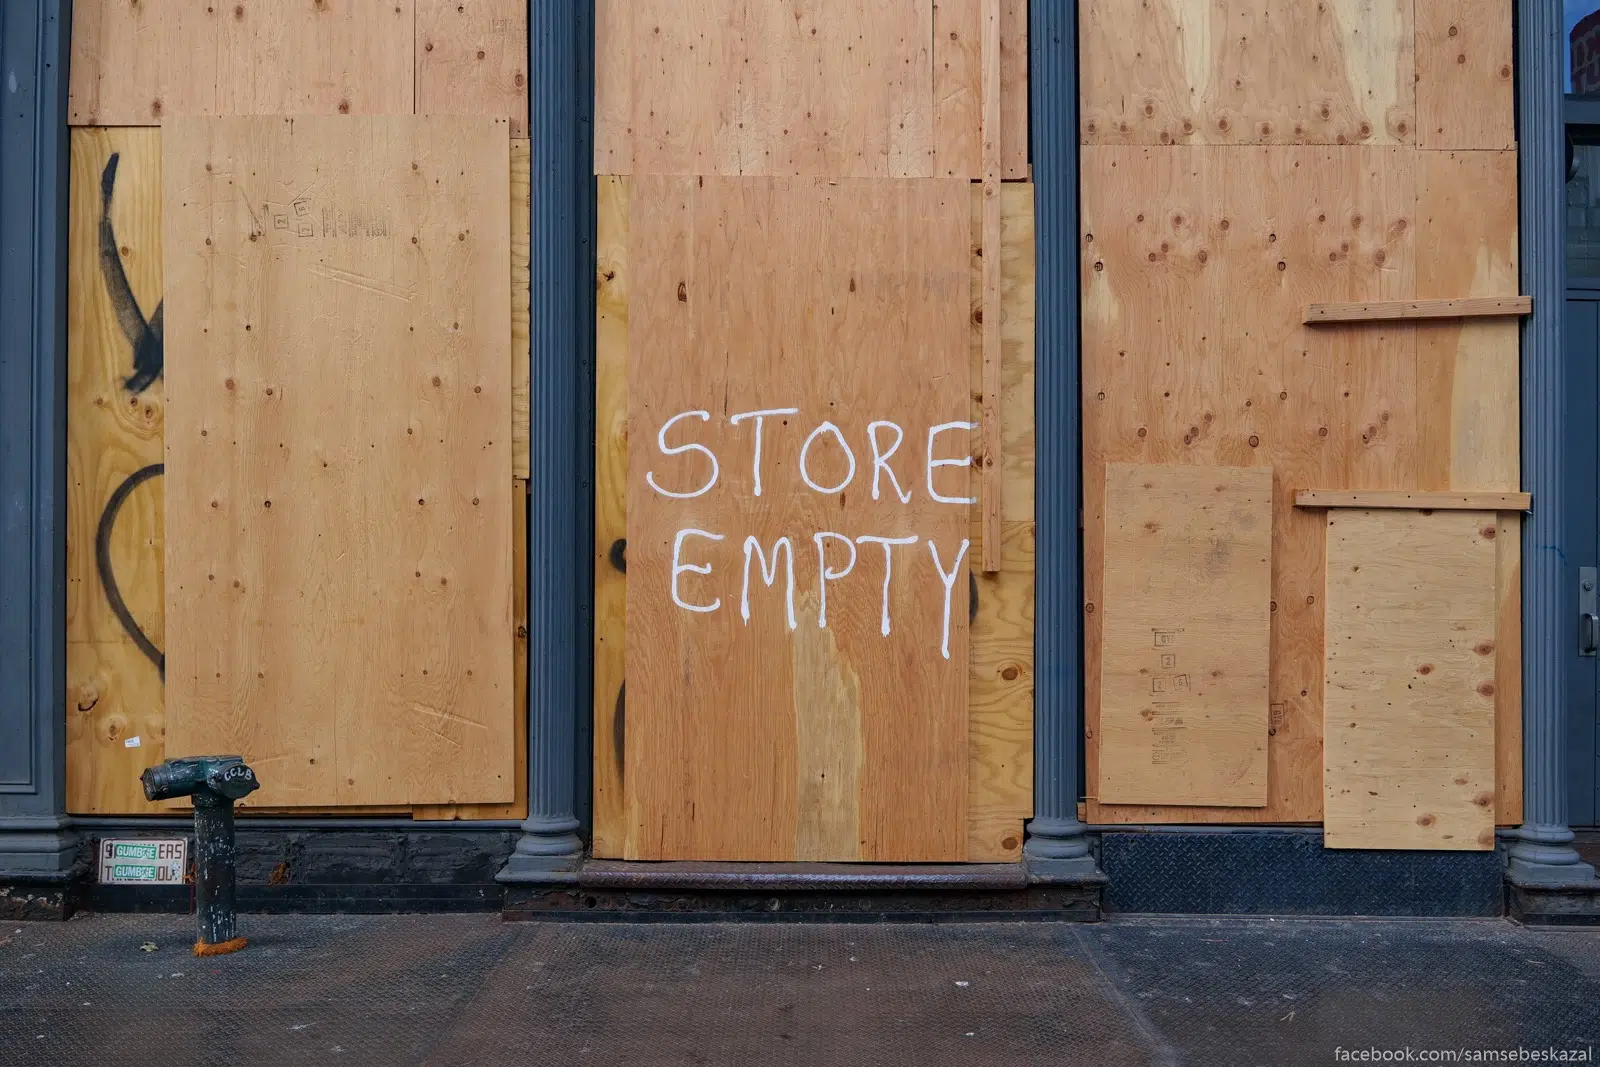 STORE
EMPTY
CCLB
GUMBEE ERS
GUMBEE
facebook.com/samsebeskazal